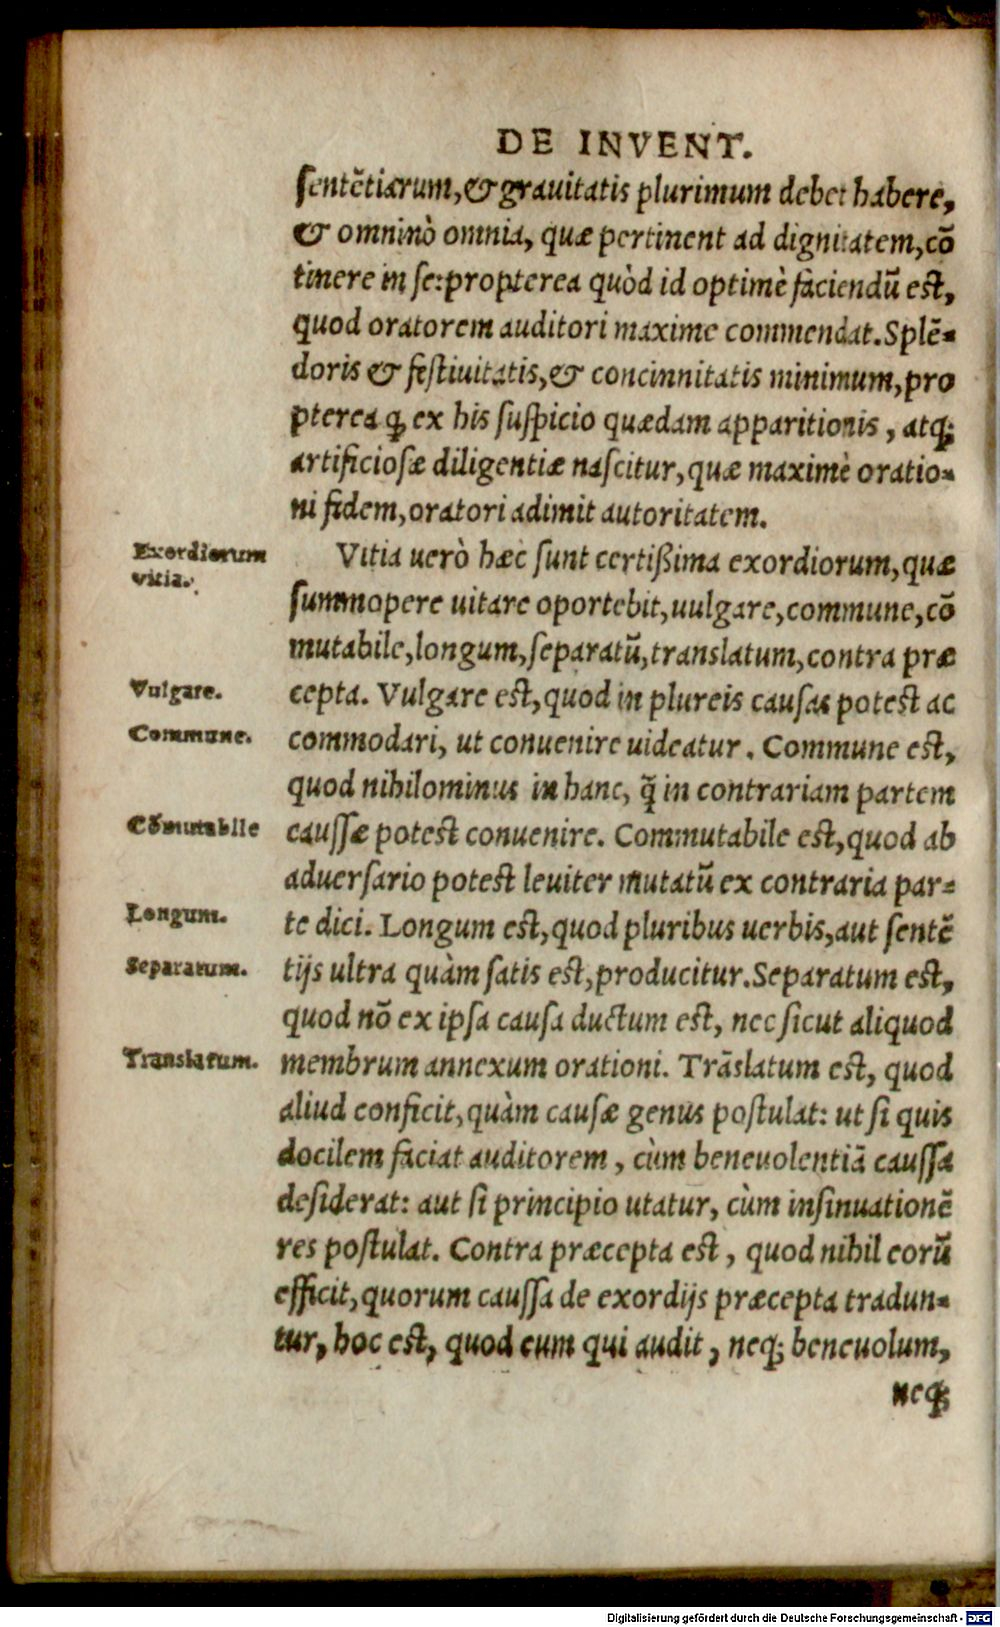 DE INVENT.
sentētiarum,& grauitatis plurimum debet habere,
& omninò omnia, quæ pertinent ad dignitatem,cō
tinere in se:propterea quòd id optimè faciendū est,
quod oratorem auditori maxime commendat.Splē-
doris & festiuitatis,& concinnitatis minimum,pro
pterea ꝙ ex his suspicio quædam apparitionis, atq;
artificiosæ diligentiæ nascitur,quæ maximè oratio-
ni fidem,oratori adimit autoritatem.
Exordiorum
vitia.
Vitia uerò hæc sunt certißima exordiorum,quæ
summopere uitare oportebit,uulgare,commune,cō
mutabile,longum,separatū,translatum,contra præ
Vulgare.
cepta. Vulgare est,quod in plureis causas potest ac
Commune.
commodari, ut conuenire uideatur. Commune est,
quod nihilominus in hanc, q̄ in contrariam partem
Cōmutabile
caussæ potest conuenire. Commutabile est,quod ab
aduersario potest leuiter mutatū ex contraria par-
Longum.
te dici. Longum est,quod pluribus uerbis,aut sentē
Separatum.
tijs ultra quàm satis est,producitur.Separatum est,
quod nō ex ipsa causa ductum est, nec sicut aliquod
Translatum.
membrum annexum orationi. Trāslatum est, quod
aliud conficit,quàm causæ genus postulat: ut si quis
docilem faciat auditorem, cùm beneuolentiā caussa
desiderat: aut si principio utatur, cùm insinuationē
res postulat. Contra præcepta est, quod nihil eorū
efficit,quorum caussa de exordijs præcepta tradun-
tur, hoc est, quod eum qui audit, neq; beneuolum,
neq;
Digitalisierung gefördert durch die Deutsche Forschungsgemeinschaft - DFG